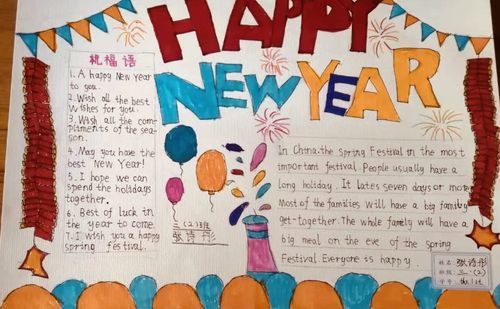 HAPPY
NEW YEAR
祝福语
1. A happy New Year
to you.
2. Wish all the best
wishes for you.
3. Wish all the com-
pliments of the sea-
son.
4. May you have the
best New Year!
5. I hope we can
spend the holidays
together.
6. Best of luck in
the year to come.
7. I wish you a happy
spring festival.
三(2)班
张诗彤
In China, the Spring Festival in the most
important festival. People usually have a
long holiday. It lates seven days or more
Most of the families will have a big family
get-together. The whole family will have a
big meal on the eve of the Spring
Festival. Everyone is happy.
姓名: 张诗彤
班级: 三.(2)
学号: